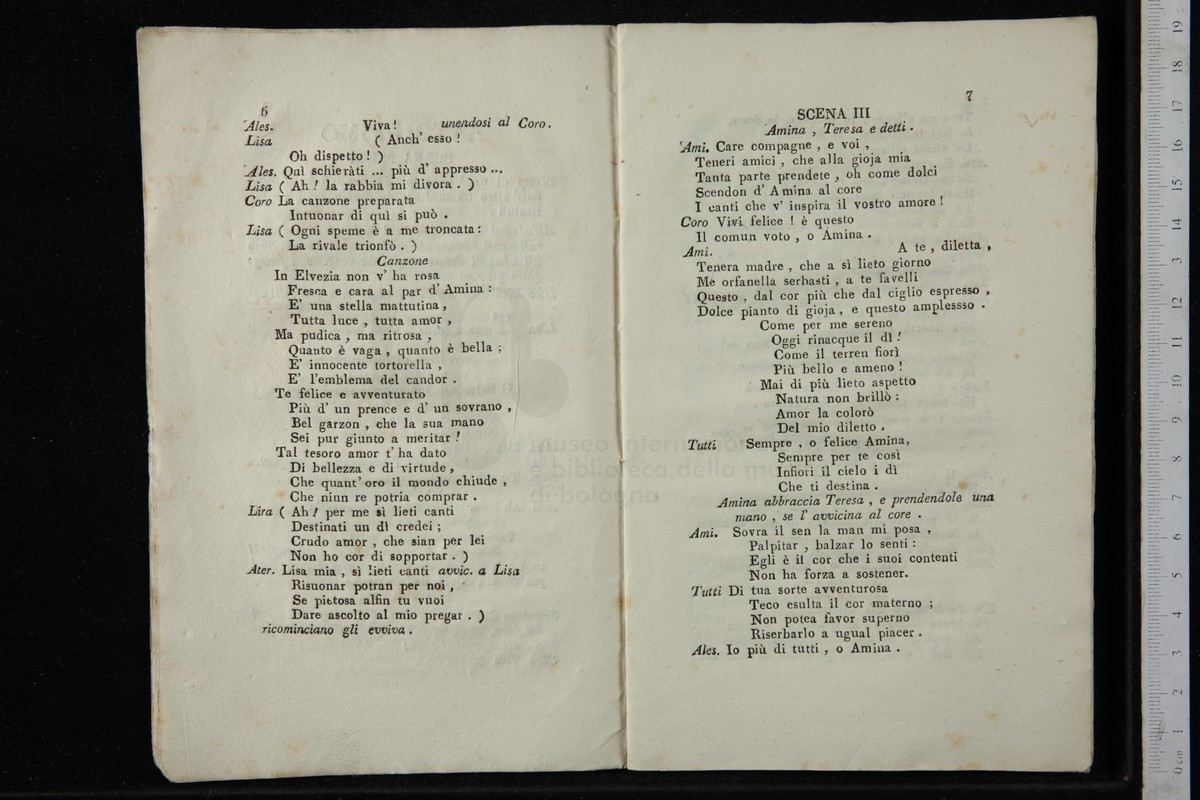 6
Ales. Viva! unendosi al Coro.
Lisa ( Anch' esso !
Oh dispetto ! )
Ales. Quì schieràti ... più d' appresso ...
Lisa ( Ah ! la rabbia mi divora . )
Coro La canzone preparata
Intuonar di quì si può .
Lisa ( Ogni speme è a me troncata :
La rivale trionfò . )
Canzone
In Elvezia non v' ha rosa
Fresca e cara al par d' Amina :
E' una stella mattutina ,
Tutta luce , tutta amor ,
Ma pudica , ma ritrosa ,
Quanto è vaga , quanto è bella ;
E' innocente tortorella ,
E' l'emblema del candor .
Te felice e avventurato
Più d' un prence e d' un sovrano ,
Bel garzon , che la sua mano
Sei pur giunto a meritar !
Tal tesoro amor t' ha dato
Di bellezza e di virtude ,
Che quant' oro il mondo chiude ,
Che ninn re potria comprar .
Lira ( Ah ! per me sì lieti canti
Destinati un dì credei ;
Crudo amor , che sian per lei
Non ho cor di sopportar . )
Ater. Lisa mia , sì lieti canti avvic. a Lisa
Risuonar potran per noi ,
Se pietosa alfin tu vuoi
Dare ascolto al mio pregar . )
ricominciano gli evviva .
7
SCENA III
Amina , Teresa e detti .
Ami. Care compagne , e voi ,
Teneri amici , che alla gioja mia
Tanta parte prendete , oh come dolci
Scendon d' Amina al core
I canti che v' inspira il vostro amore !
Coro Vivi felice ! è questo
Il comun voto , o Amina .
Ami. A te , diletta ,
Tenera madre , che a sì lieto giorno
Me orfanella serbasti , a te favelli
Questo , dal cor più che dal ciglio espresso ,
Dolce pianto di gioja , e questo amplessso .
Come per me sereno
Oggi rinacque il dì !
Come il terren fiorì
Più bello e ameno !
Mai di più lieto aspetto
Natura non brillò :
Amor la colorò
Del mio diletto .
Tutti Sempre , o felice Amina,
Sempre per te così
Infiori il cielo i dì
Che ti destina .
Amina abbraccia Teresa , e prendendole una
mano , se l' avvicina al core .
Ami. Sovra il sen la man mi posa ,
Palpitar , balzar lo senti :
Egli è il cor che i suoi contenti
Non ha forza a sostener.
Tutti Di tua sorte avventurosa
Teco esulta il cor materno ;
Non potea favor superno
Riserbarlo a ugual piacer .
Ales. Io più di tutti , o Amina .
museo internazion
e biblioteca della mu
di bologna
0 cm 1 2 3 4 5 6 7 8 9 10 11 12 13 14 15 16 17 18 19